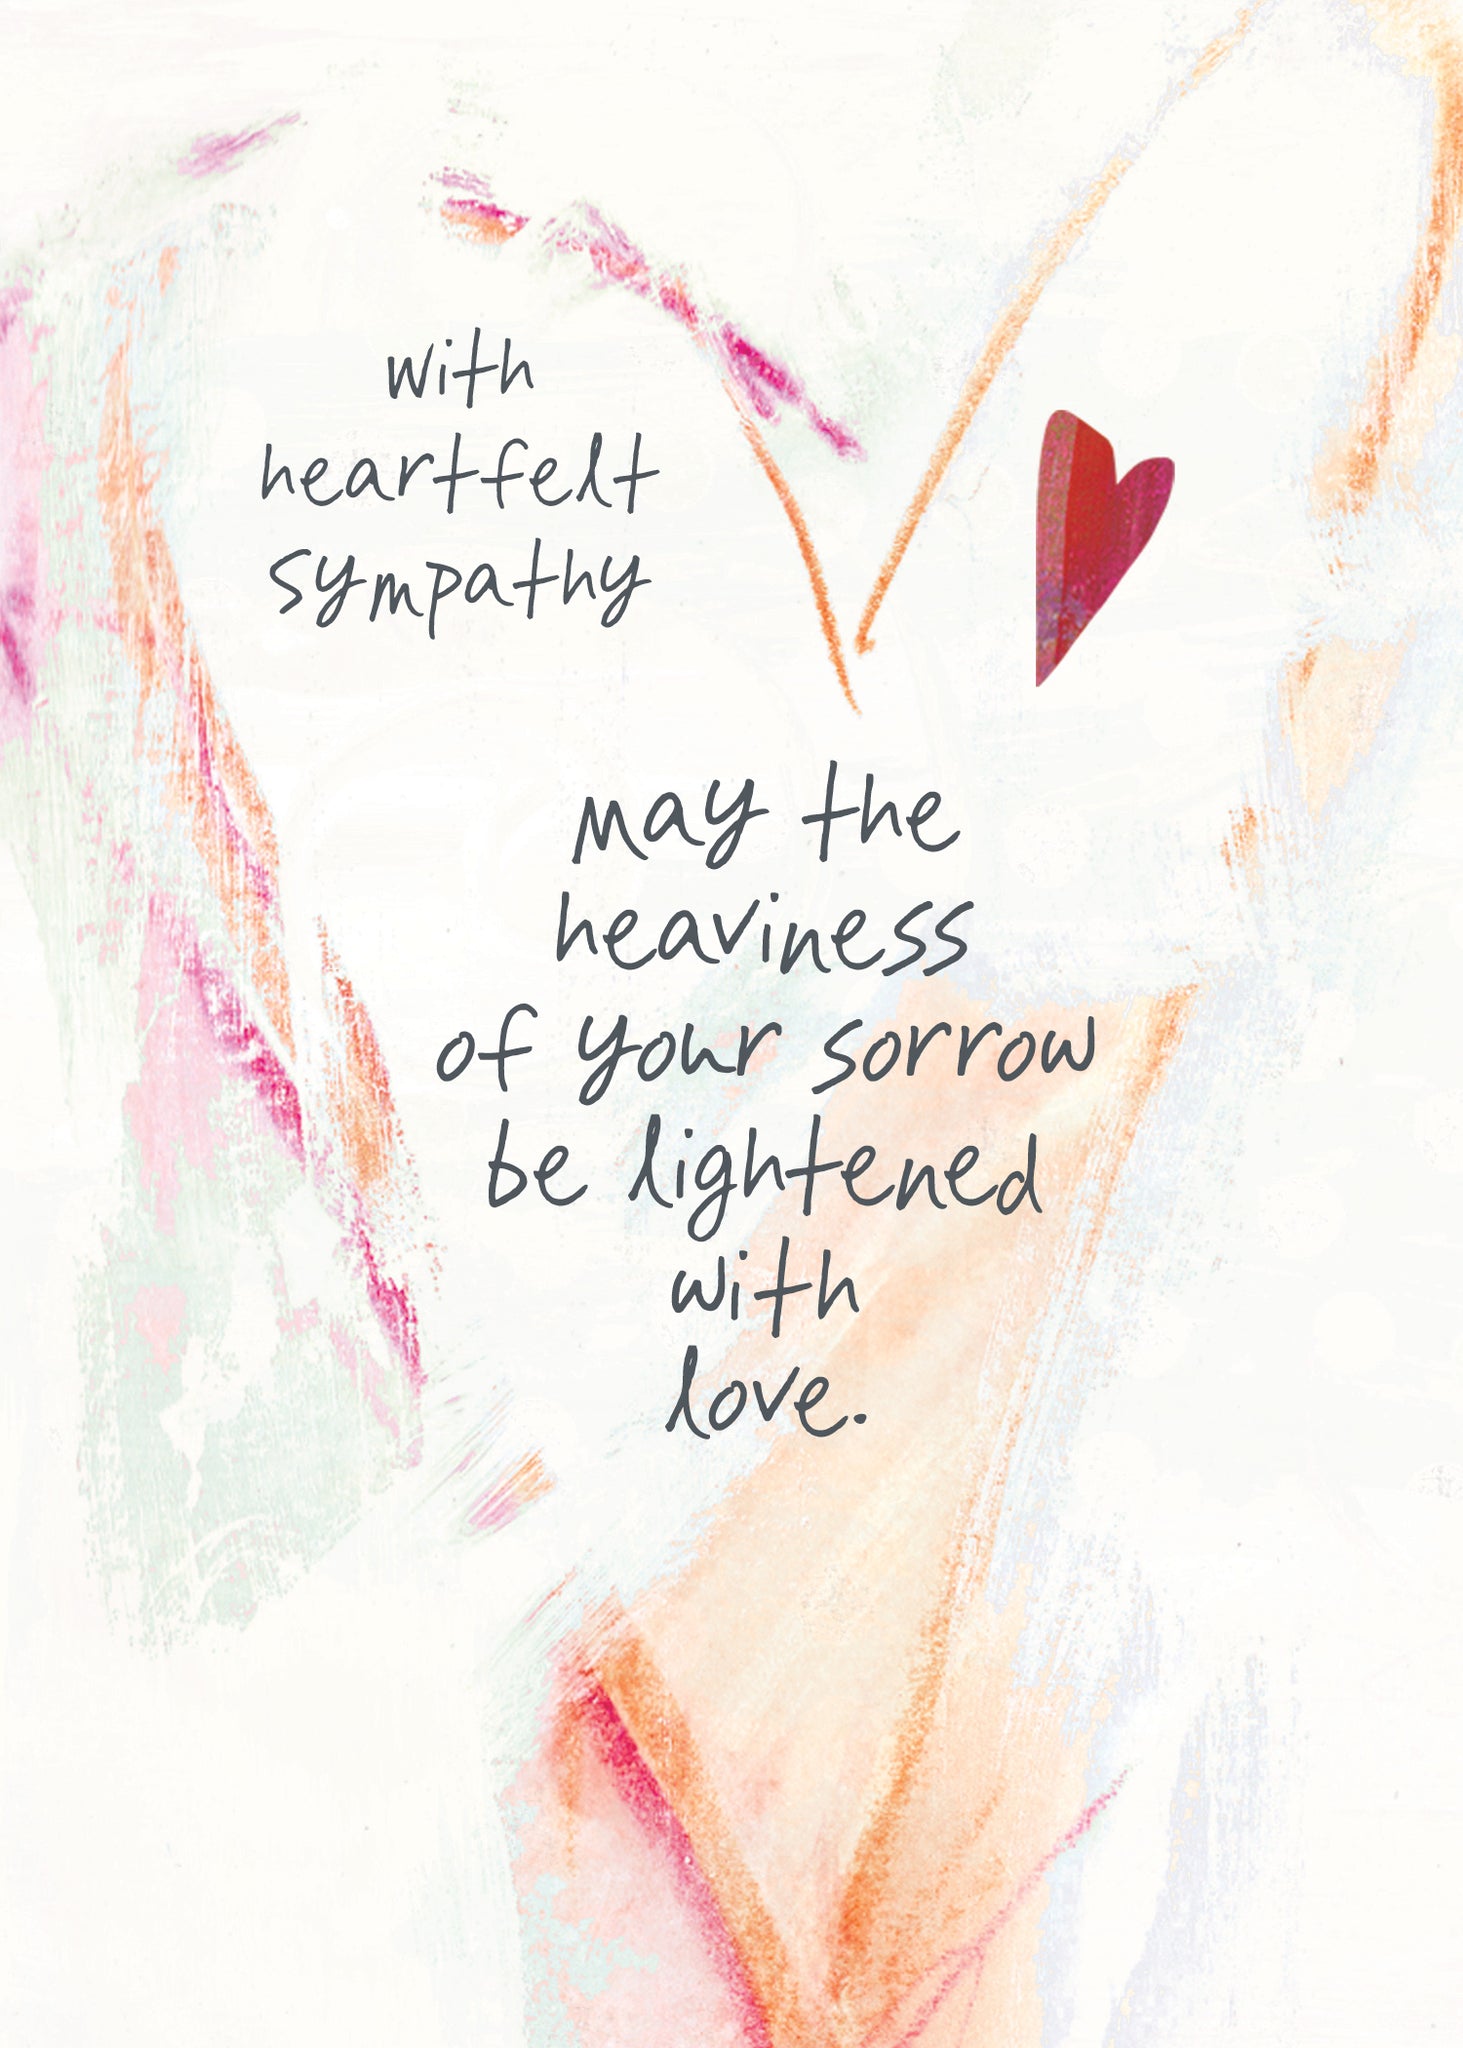 with
heartfelt
sympathy
may the
heaviness
of your sorrow
be lightened
with
love.